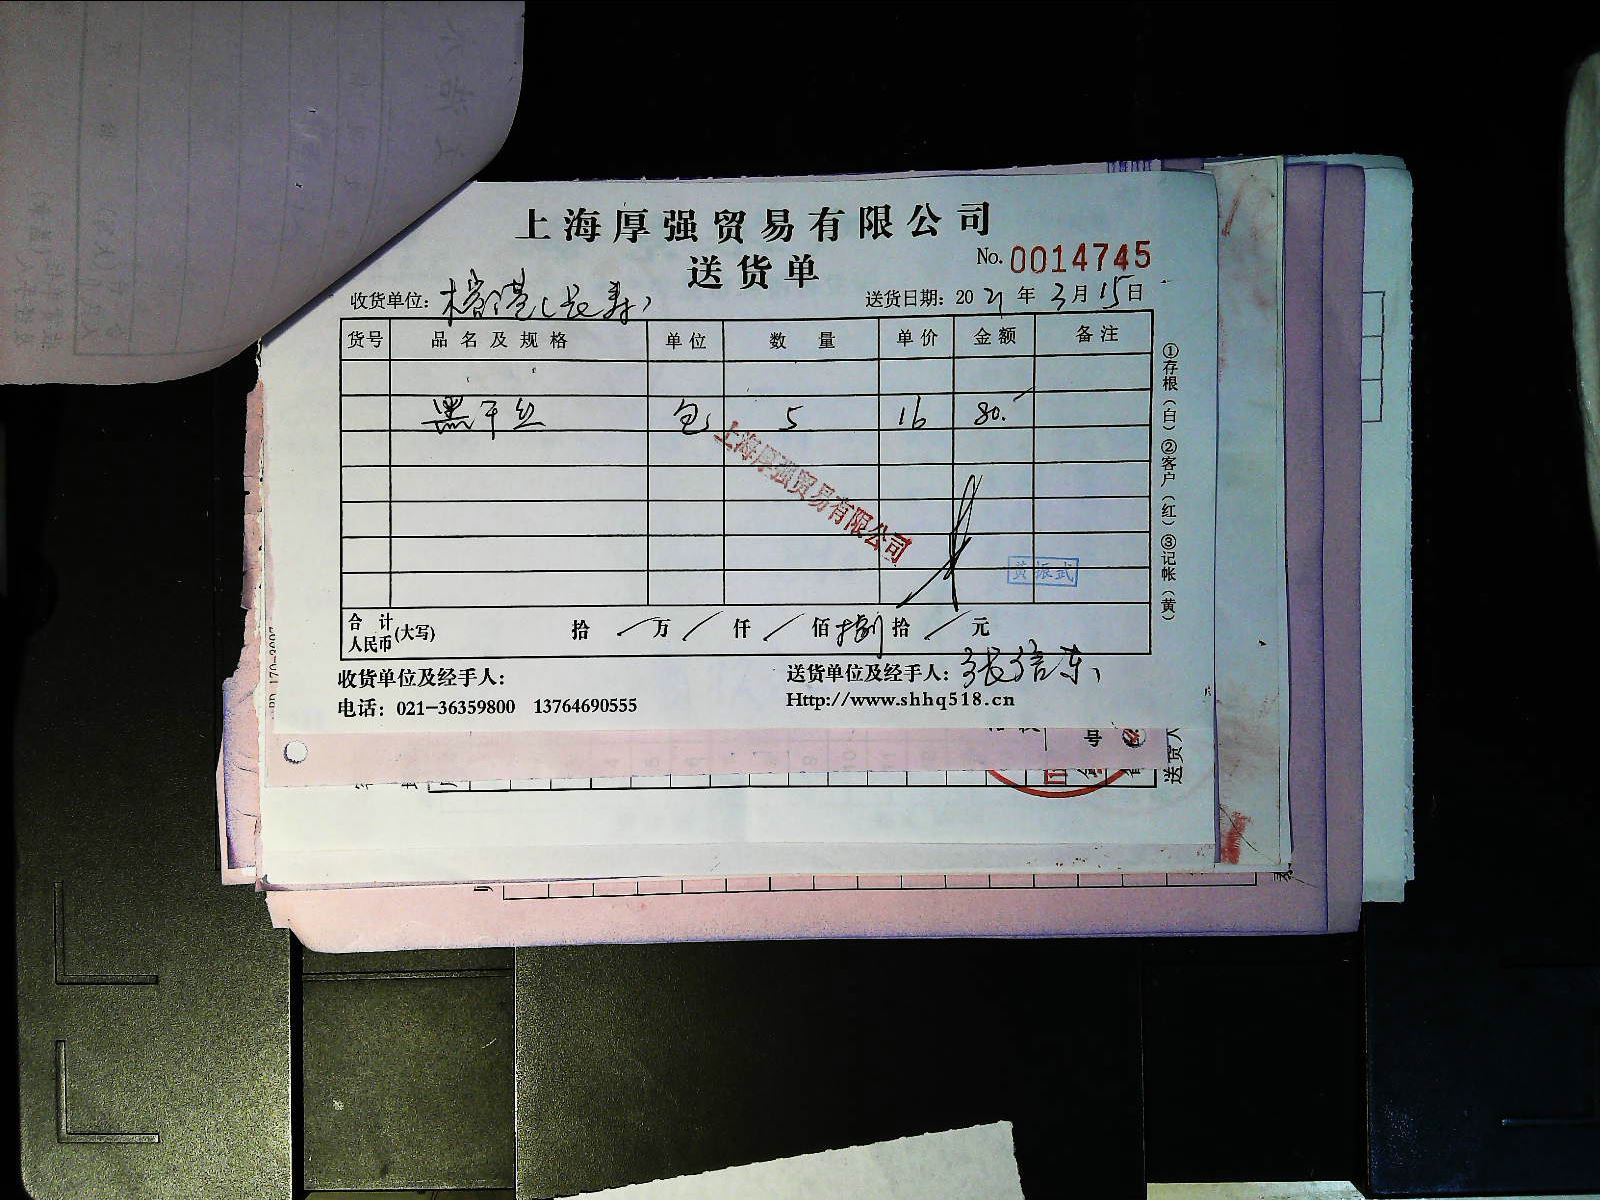 上海厚强贸易有限公司
送货单
No. 0014745
收货单位: 送货日期: 2021年3月15日
货号 品名及规格 单位 数量 单价 金额 备注
黑干丝 包 5 16 80.
上海厚强贸易有限公司
黄振武
合计人民币(大写) 拾 / 万 / 仟 / 佰 捌 拾 / 元
收货单位及经手人: 送货单位及经手人: 张信东
电话: 021-36359800 13764690555 Http://www.shhq518.cn
①存根(白) ②客户(红) ③记帐(黄)